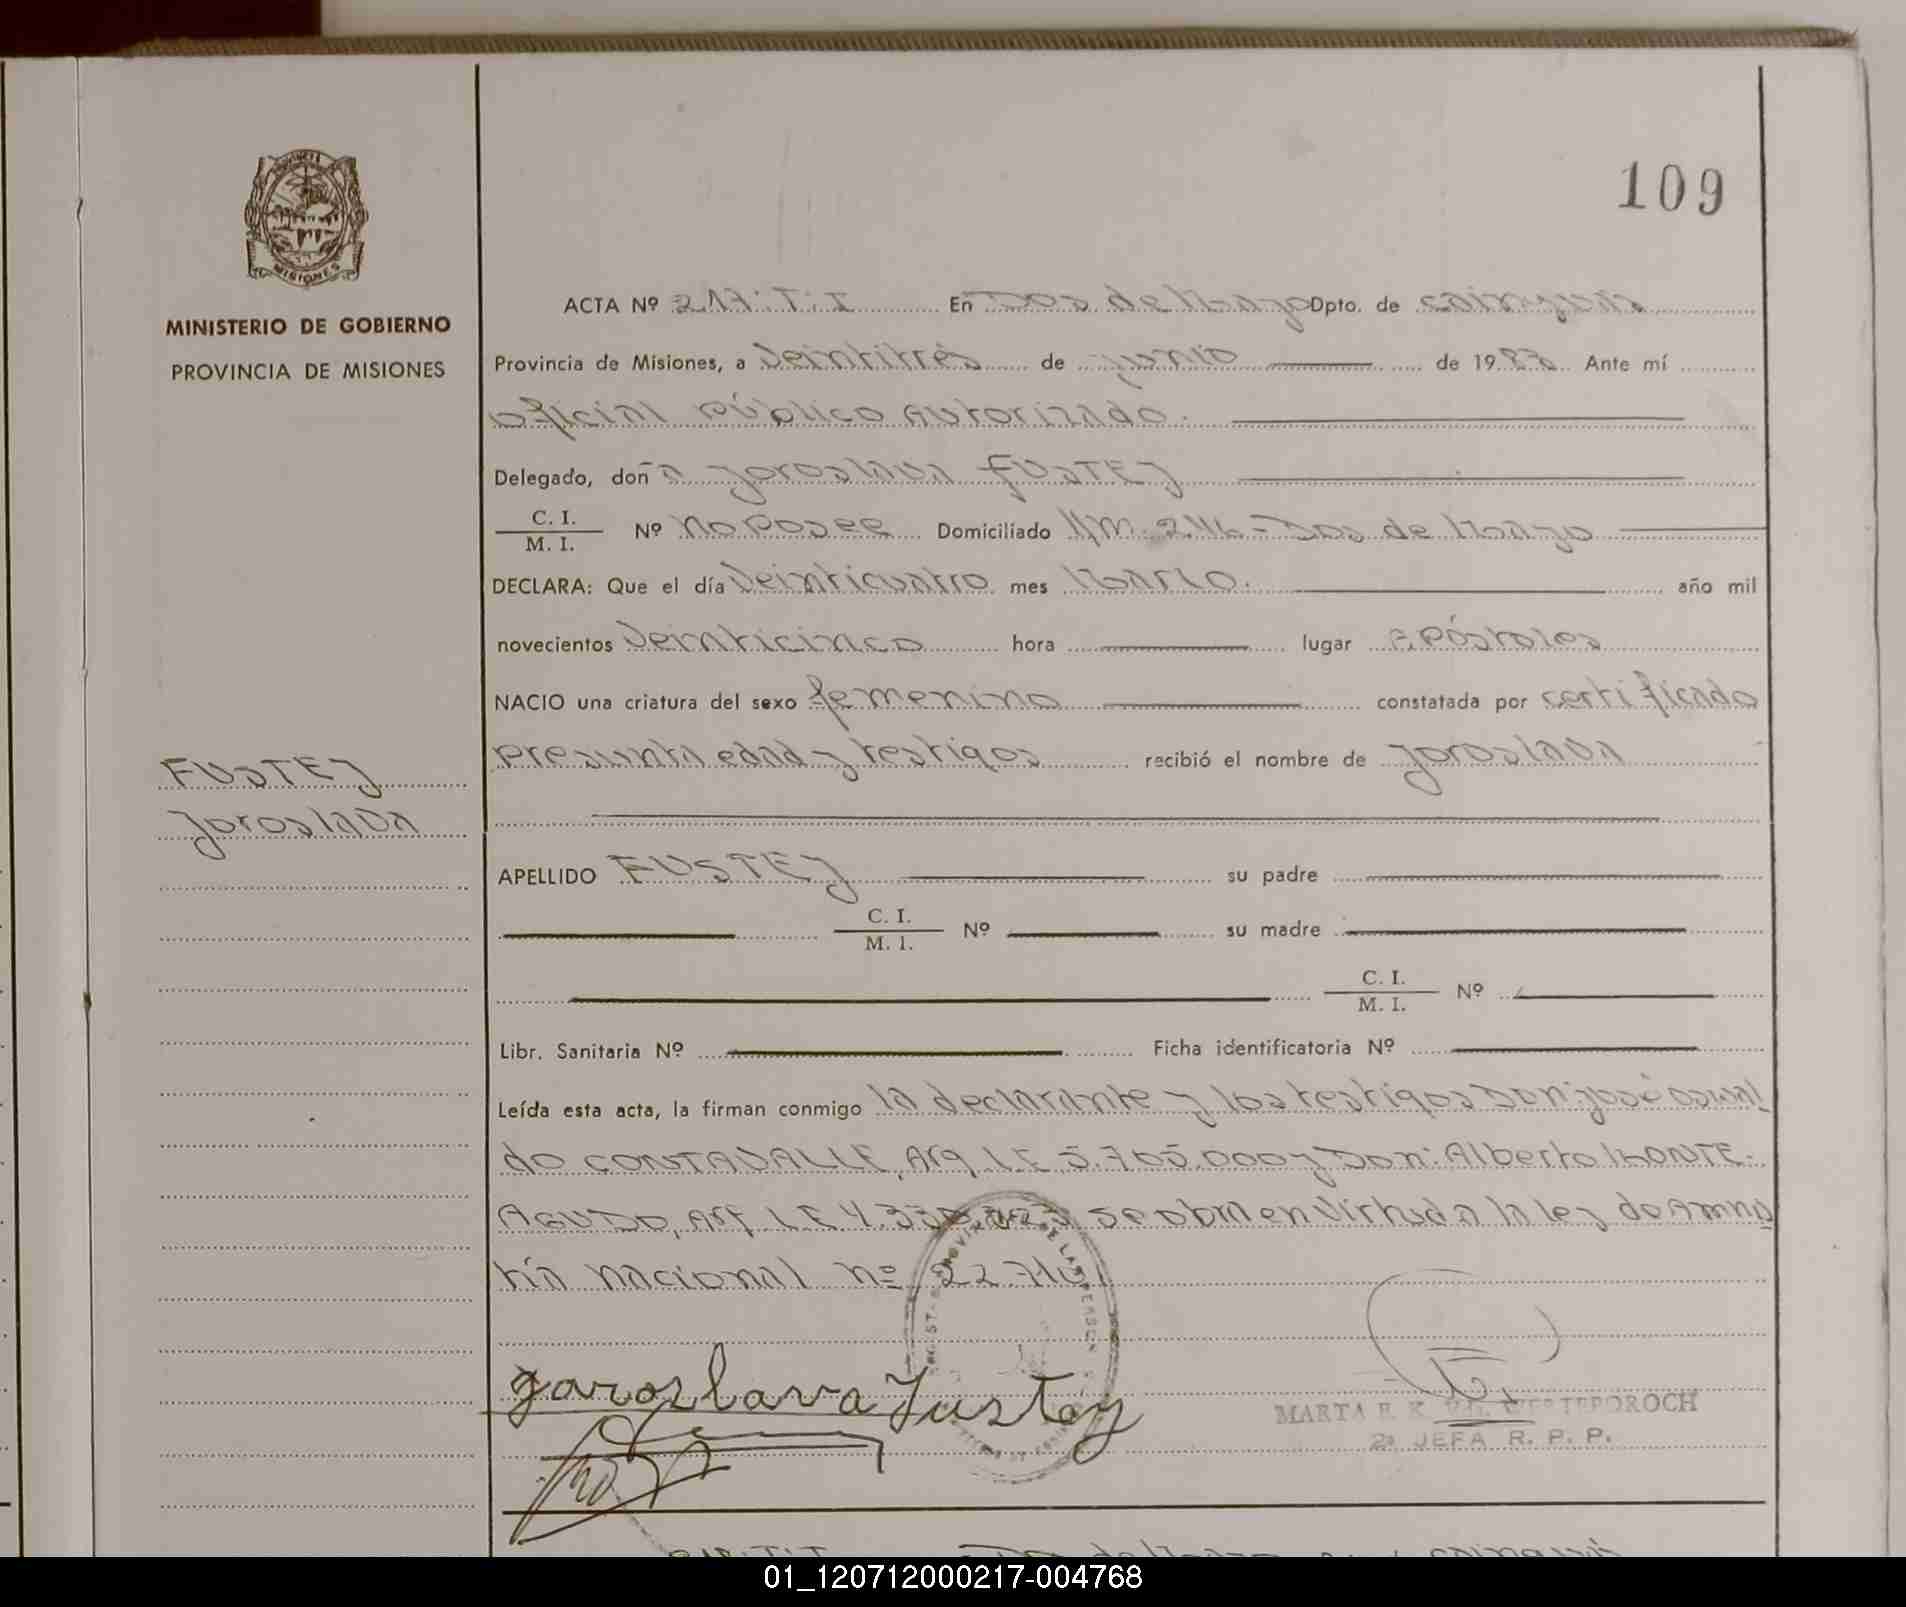 109
MINISTERIO DE GOBIERNO
PROVINCIA DE MISIONES
ACTA Nº 217: T: I En Dos de Mayo Dpto. de cainguas
Provincia de Misiones, a Veintitrés de junio de 1983 Ante mí
oficial público Autorizado.
Delegado, doña Joroslava FUSTEJ
C. I.
M. I. Nº No Posee Domiciliado Dos de Mayo
DECLARA: Que el día Veinticuatro mes Marzo. año mil
novecientos Veinticinco hora lugar Apóstoles
NACIO una criatura del sexo femenino constatada por certificado
presunta edad y testigos recibió el nombre de Joroslava
FUSTEJ
Joroslava
APELLIDO FUSTEJ su padre
C. I.
M. I. Nº su madre
C. I.
M. I. Nº
Libr. Sanitaria Nº Ficha identificatoria Nº
Leída esta acta, la firman conmigo la declarante y los testigos Don: José Oswal
do CONTAVALLE, Arg. L.E 5.765.000 y Don: Alberto MONTE-
AGUDO, Arg. L.E se obm en Virtud a la ley de Amnis
tía Nacional nº
Jaroslava Fustey
MARTA E. K.
2ª JEFA R. P. P.
01_120712000217-004768